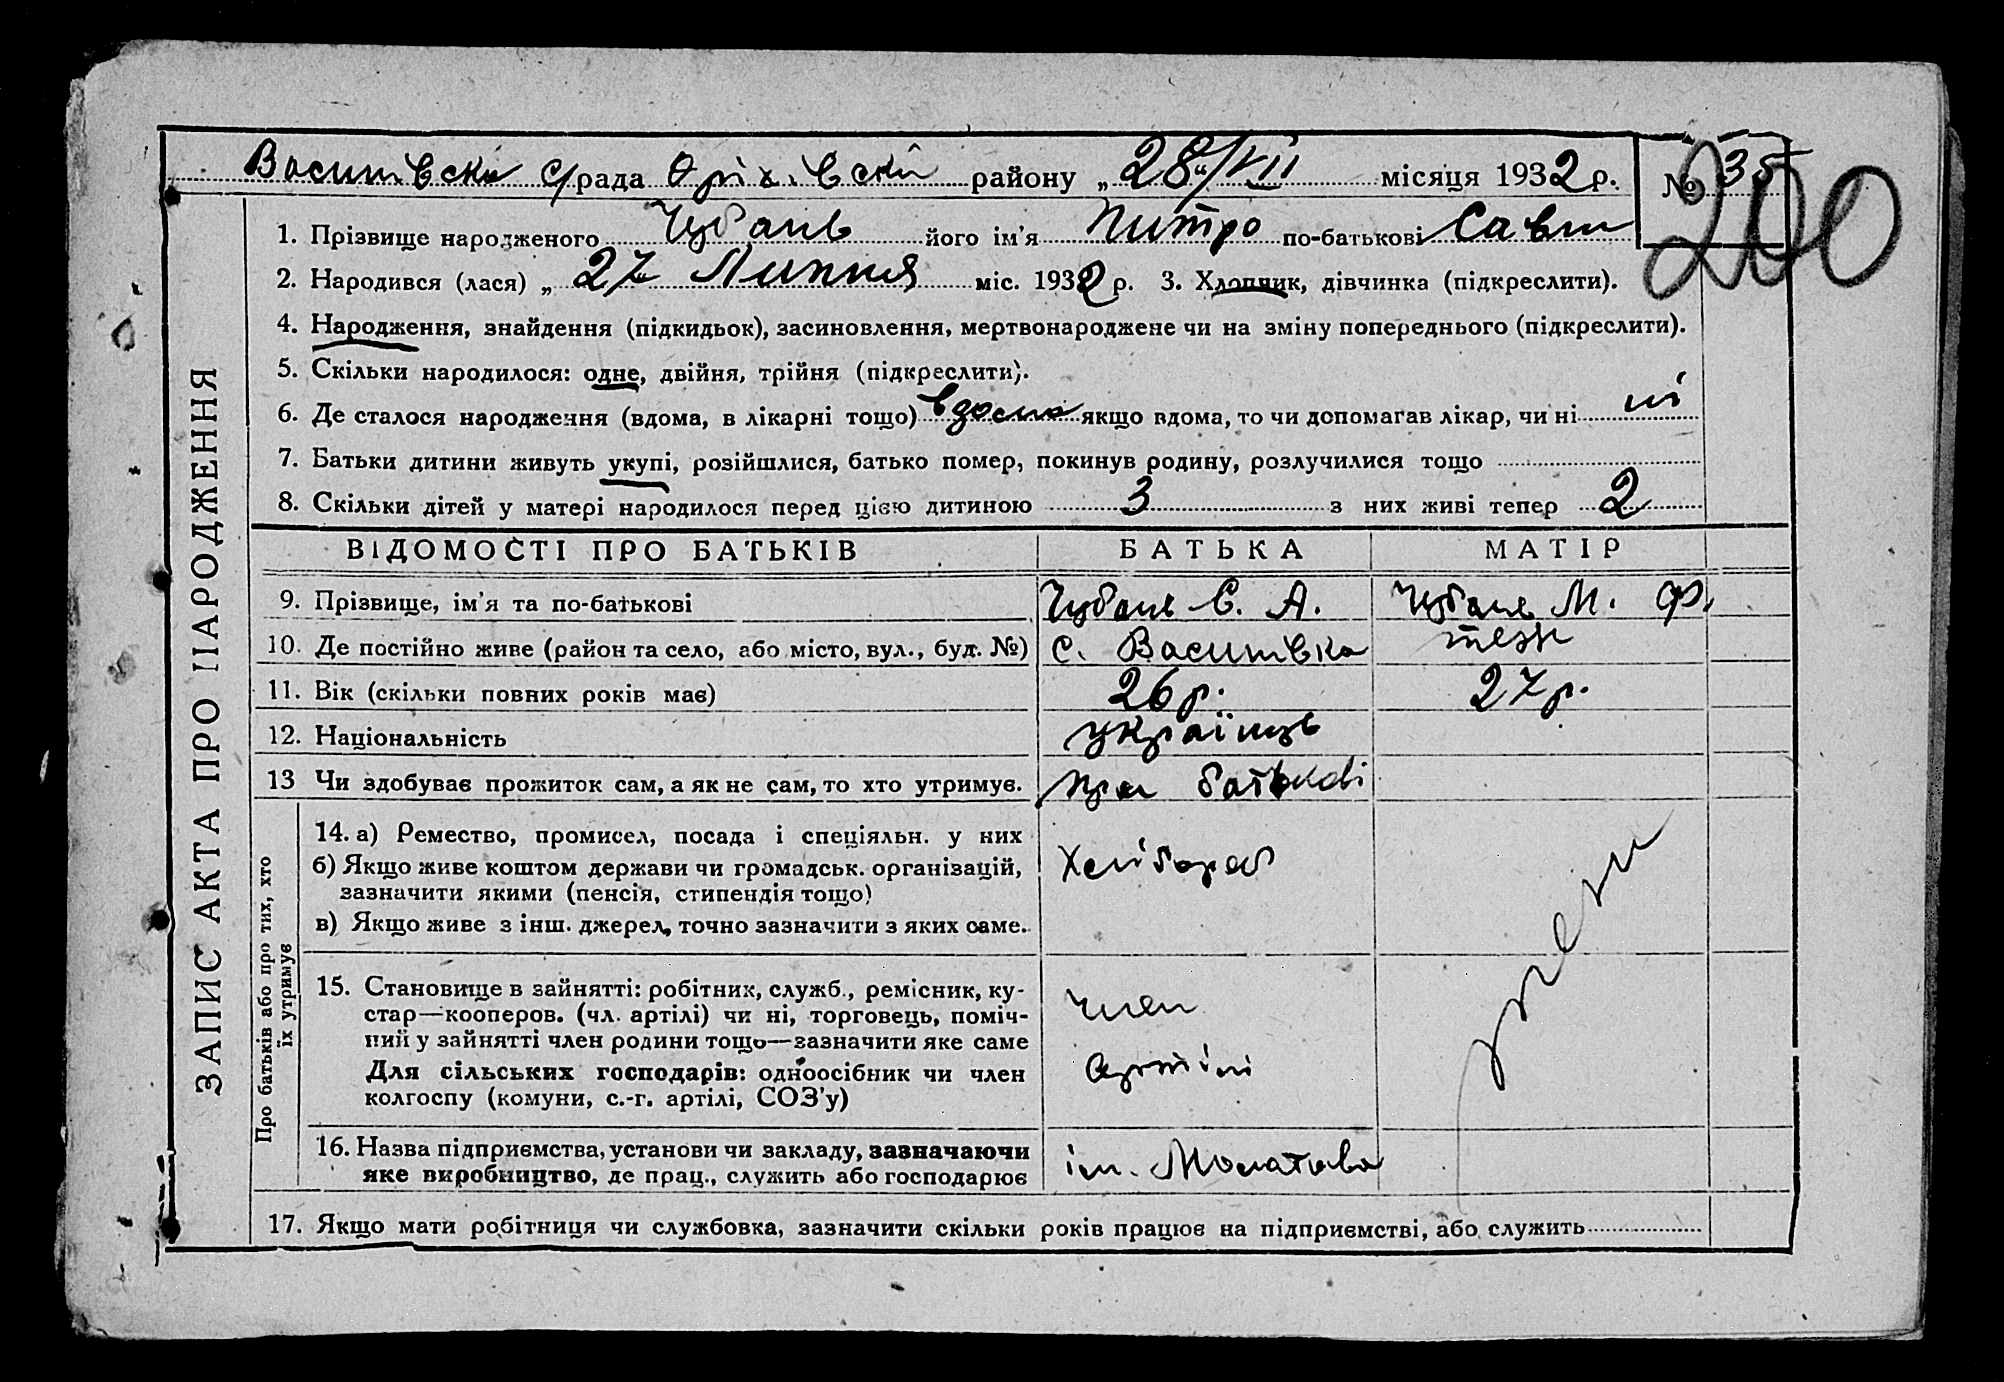 Василівська с/рада Оріхівській району „28“/VII місяця 1932 р. № 35
200
1. Прізвище народженого Чубань його ім'я Питро по-батькові Савич
2. Народився (лася) „ 27 Липня міс. 1932 р. 3. Хлопчик, дівчинка (підкреслити).
4. Народження, знайдення (підкидьок), засиновлення, мертвонароджене чи на зміну попереднього (підкреслити).
5. Скільки народилося: одне, двійня, трійня (підкреслити).
6. Де сталося народження (вдома, в лікарні тощо) вдома якщо вдома, то чи допомагав лікар, чи ні ні
7. Батьки дитини живуть укупі, розійшлися, батько помер, покинув родину, розлучилися тощо
8. Скільки дітей у матері народилося перед цією дитиною 3 з них живі тепер 2
ЗАПИС АКТА ПРО НАРОДЖЕННЯ
ВІДОМОСТІ ПРО БАТЬКІВ БАТЬКА МАТІР
9. Прізвище, ім'я та по-батькові Чубань С. А. Чубань М. Ф.
10. Де постійно живе (район та село, або місто, вул., буд. №) с. Василівка теж
11. Вік (скільки повних років має) 26 р. 27 р.
12. Національність українць
13 Чи здобуває прожиток сам, а як не сам, то хто утримує. при батькові
Про батьків або про тих, хто
їх утримує
14. а) Ремество, промисел, посада і спеціяльн. у них
б) Якщо живе коштом держави чи громадськ. організацій,
зазначити якими (пенсія, стипендія тощо)
в) Якщо живе з інш. джерел, точно зазначити з яких саме.
Хлібороб
15. Становище в зайнятті: робітник, служб., ремісник, ку-
стар—кооперов. (чл. артілі) чи ні, торговець, поміч-
ний у зайнятті член родини тощо—зазначити яке саме
Для сільських господарів: одноосібник чи член
колгоспу (комуни, с.-г. артілі, СОЗ'у)
член
артілі
16. Назва підприємства, установи чи закладу, зазначаючи
яке виробництво, де прац., служить або господарює
ім. Молотова
17. Якщо мати робітниця чи службовка, зазначити скільки років працює на підприємстві, або служить